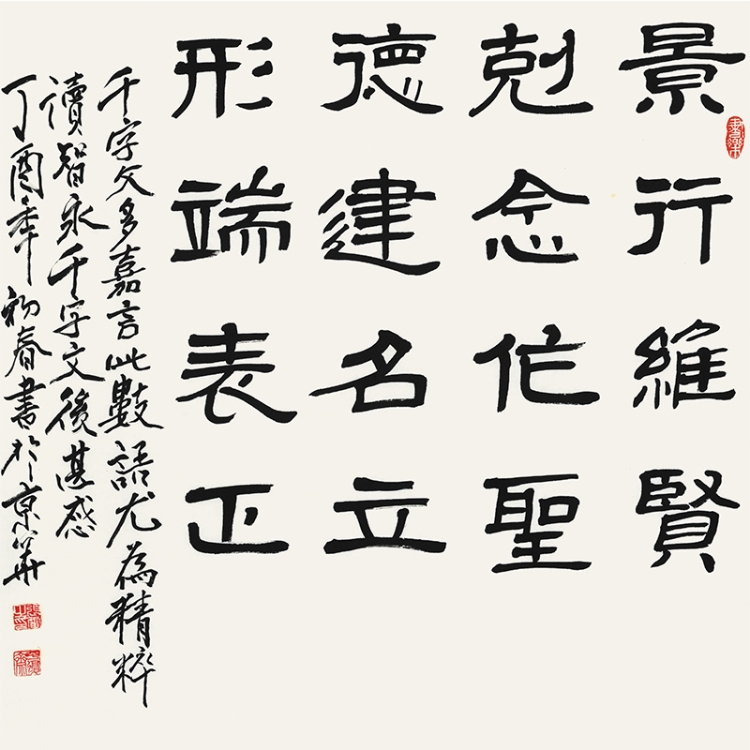 景行維賢
剋念作聖
德建名立
形端表正
千字文多嘉言此數語尤為精粹
讀智永千字文後甚感
丁酉年初春書於京華